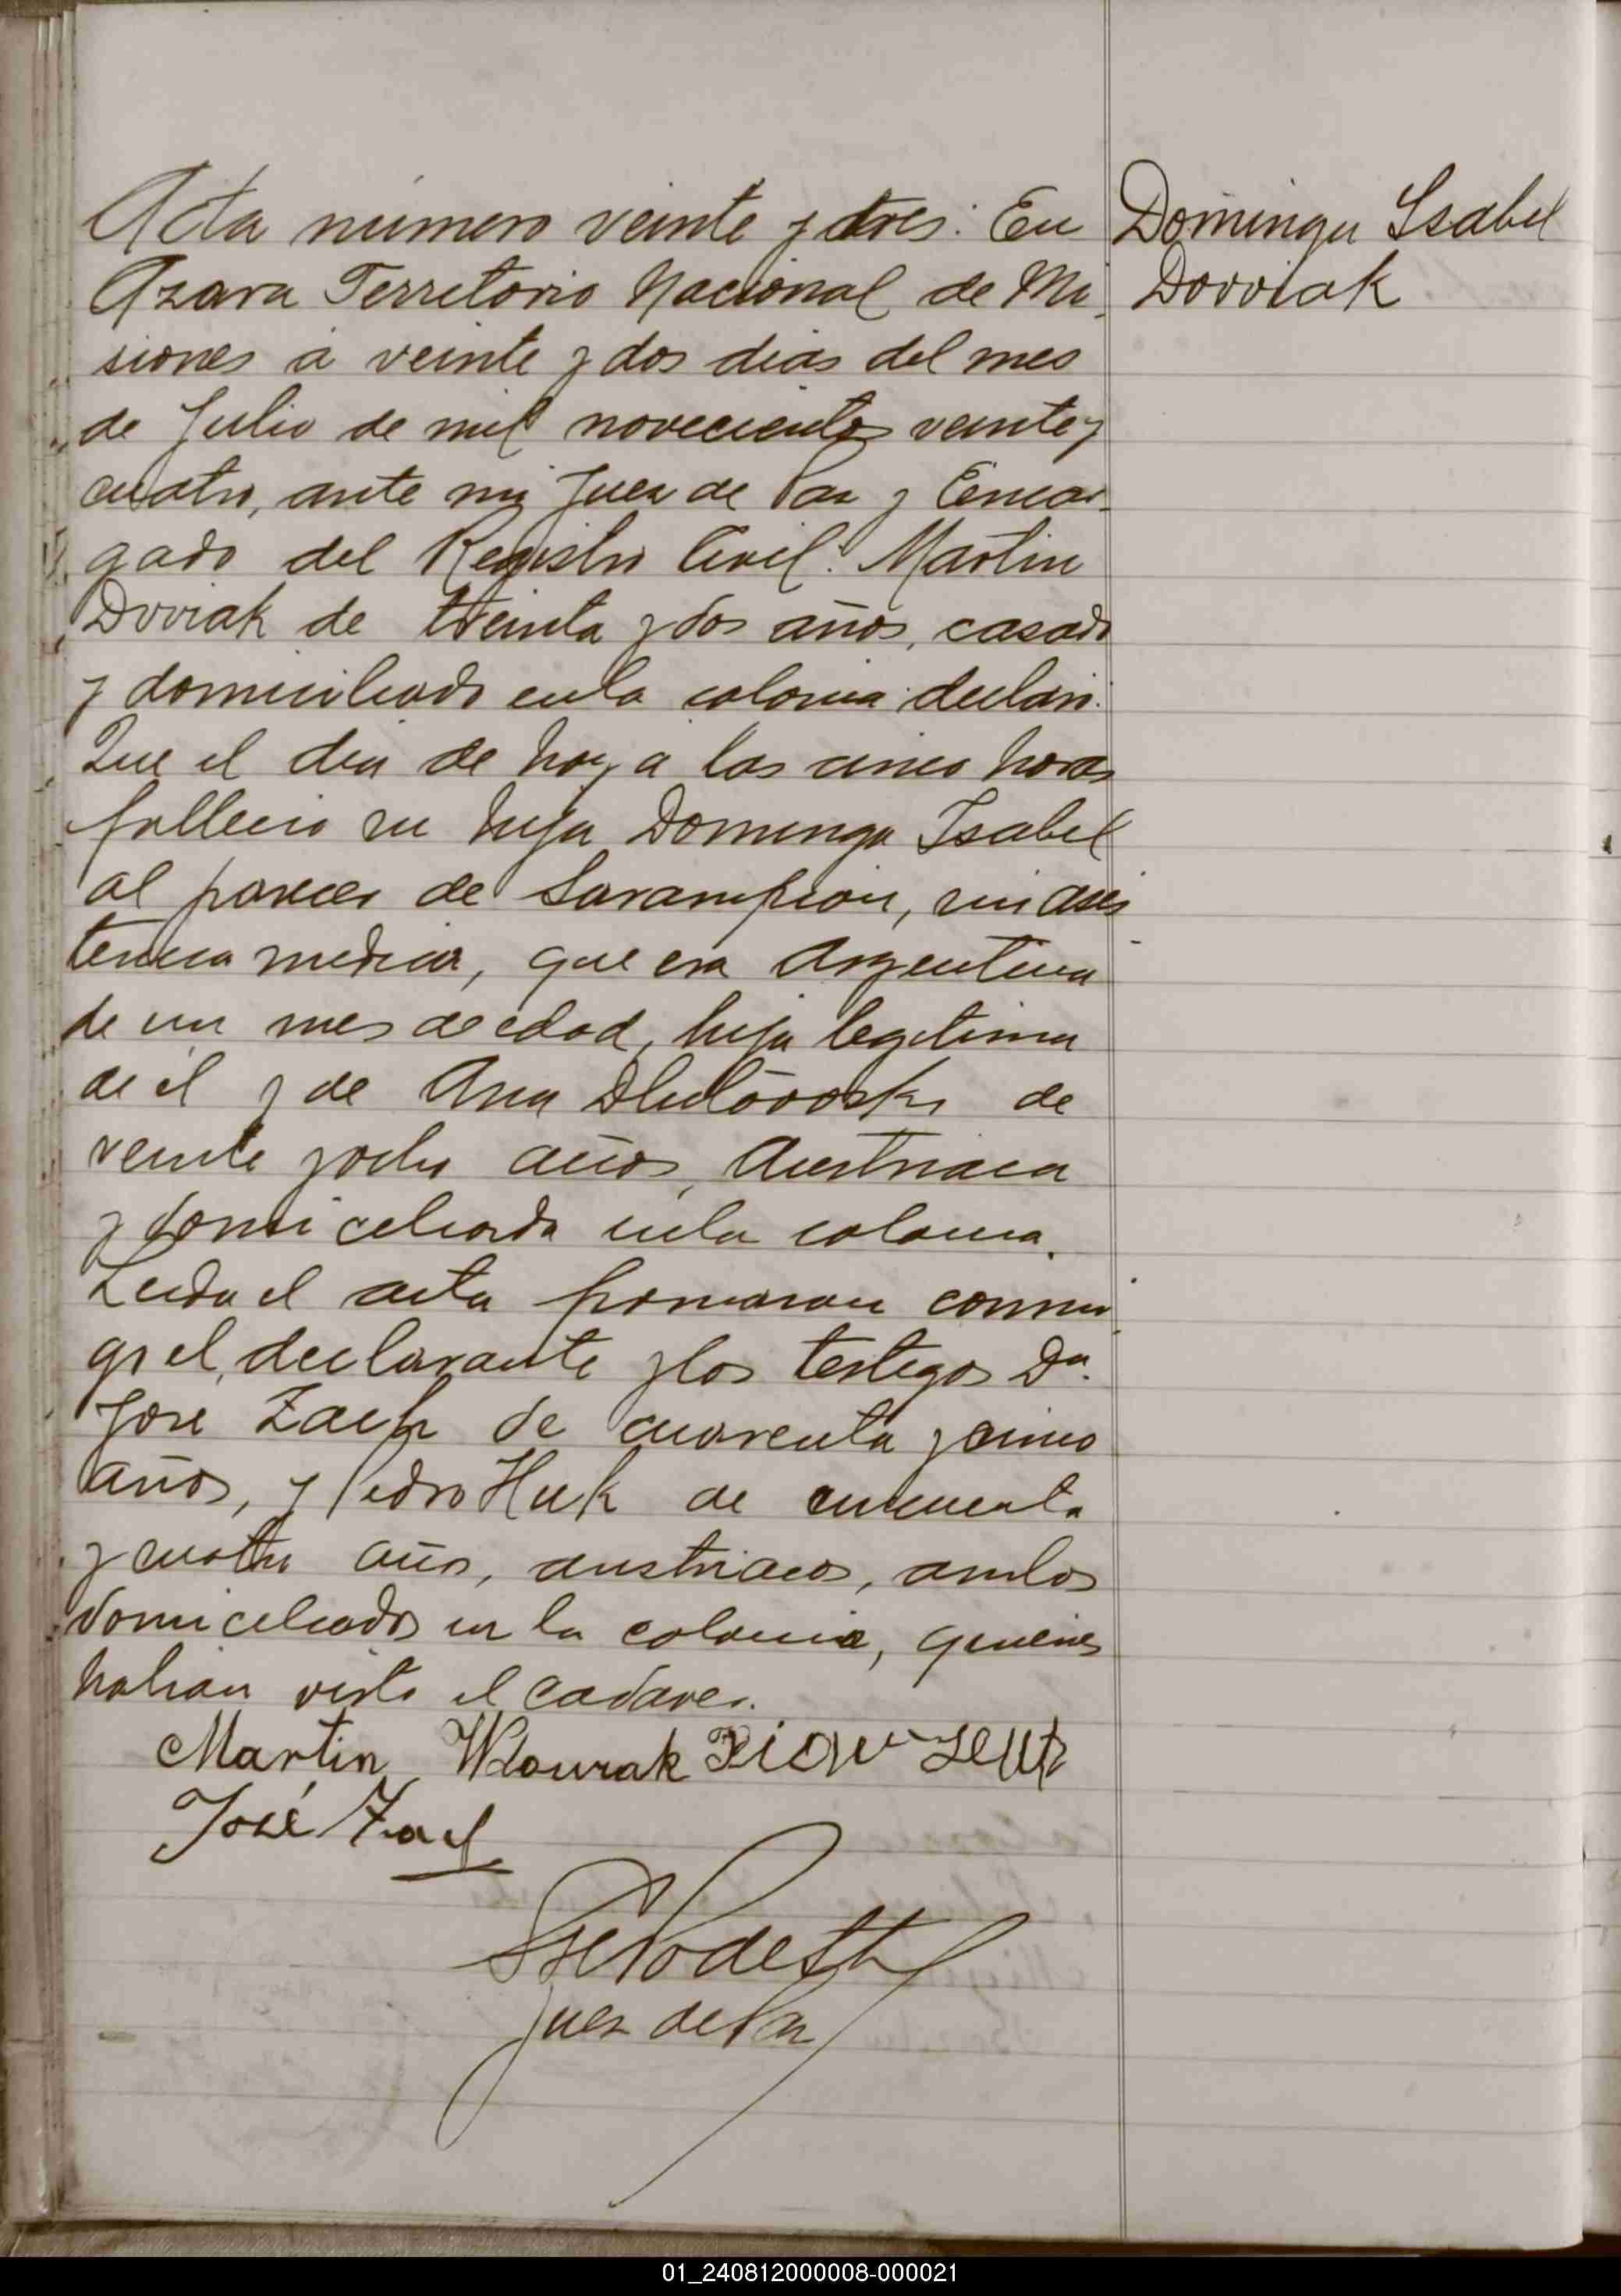 Acta número veinte y tres: En
Azara Territorio Nacional de Mi
siones á veinte y dos dias del mes
de Julio de mil novecientos veinte y
cuatro, ante mi Juez de Paz y Encar-
gado del Registro Civil: Martin
Dvoiak de treinta y dos años, casado
y domiciliado en la colonia declaró:
Que el dia de hoy a las cinco horas
fallecio su hija Dominga Isabel
al parecer de Sarampion, sin asis
tencia medica, que era Argentina
de un mes de edad, hija legitima
de él y de Ana de
veinte y ocho años, Austriaca
y domiciliada en la colonia.
Leida el acta firmaron conmi
go el declarante y los testigos Dn.
José Zach de cuarenta y cinco
años, y Pedro Huk de cincuenta
y cuatro años, austriacos, ambos
domiciliados en la colonia, quienes
habian visto el cadaver.
Martin
José Zach
Juez de Paz
Dominga Isabel
Dorviak
01_240812000008-000021